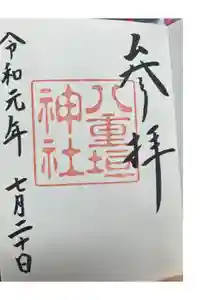 参拝
八重垣
神社
令和元年
七月二十日